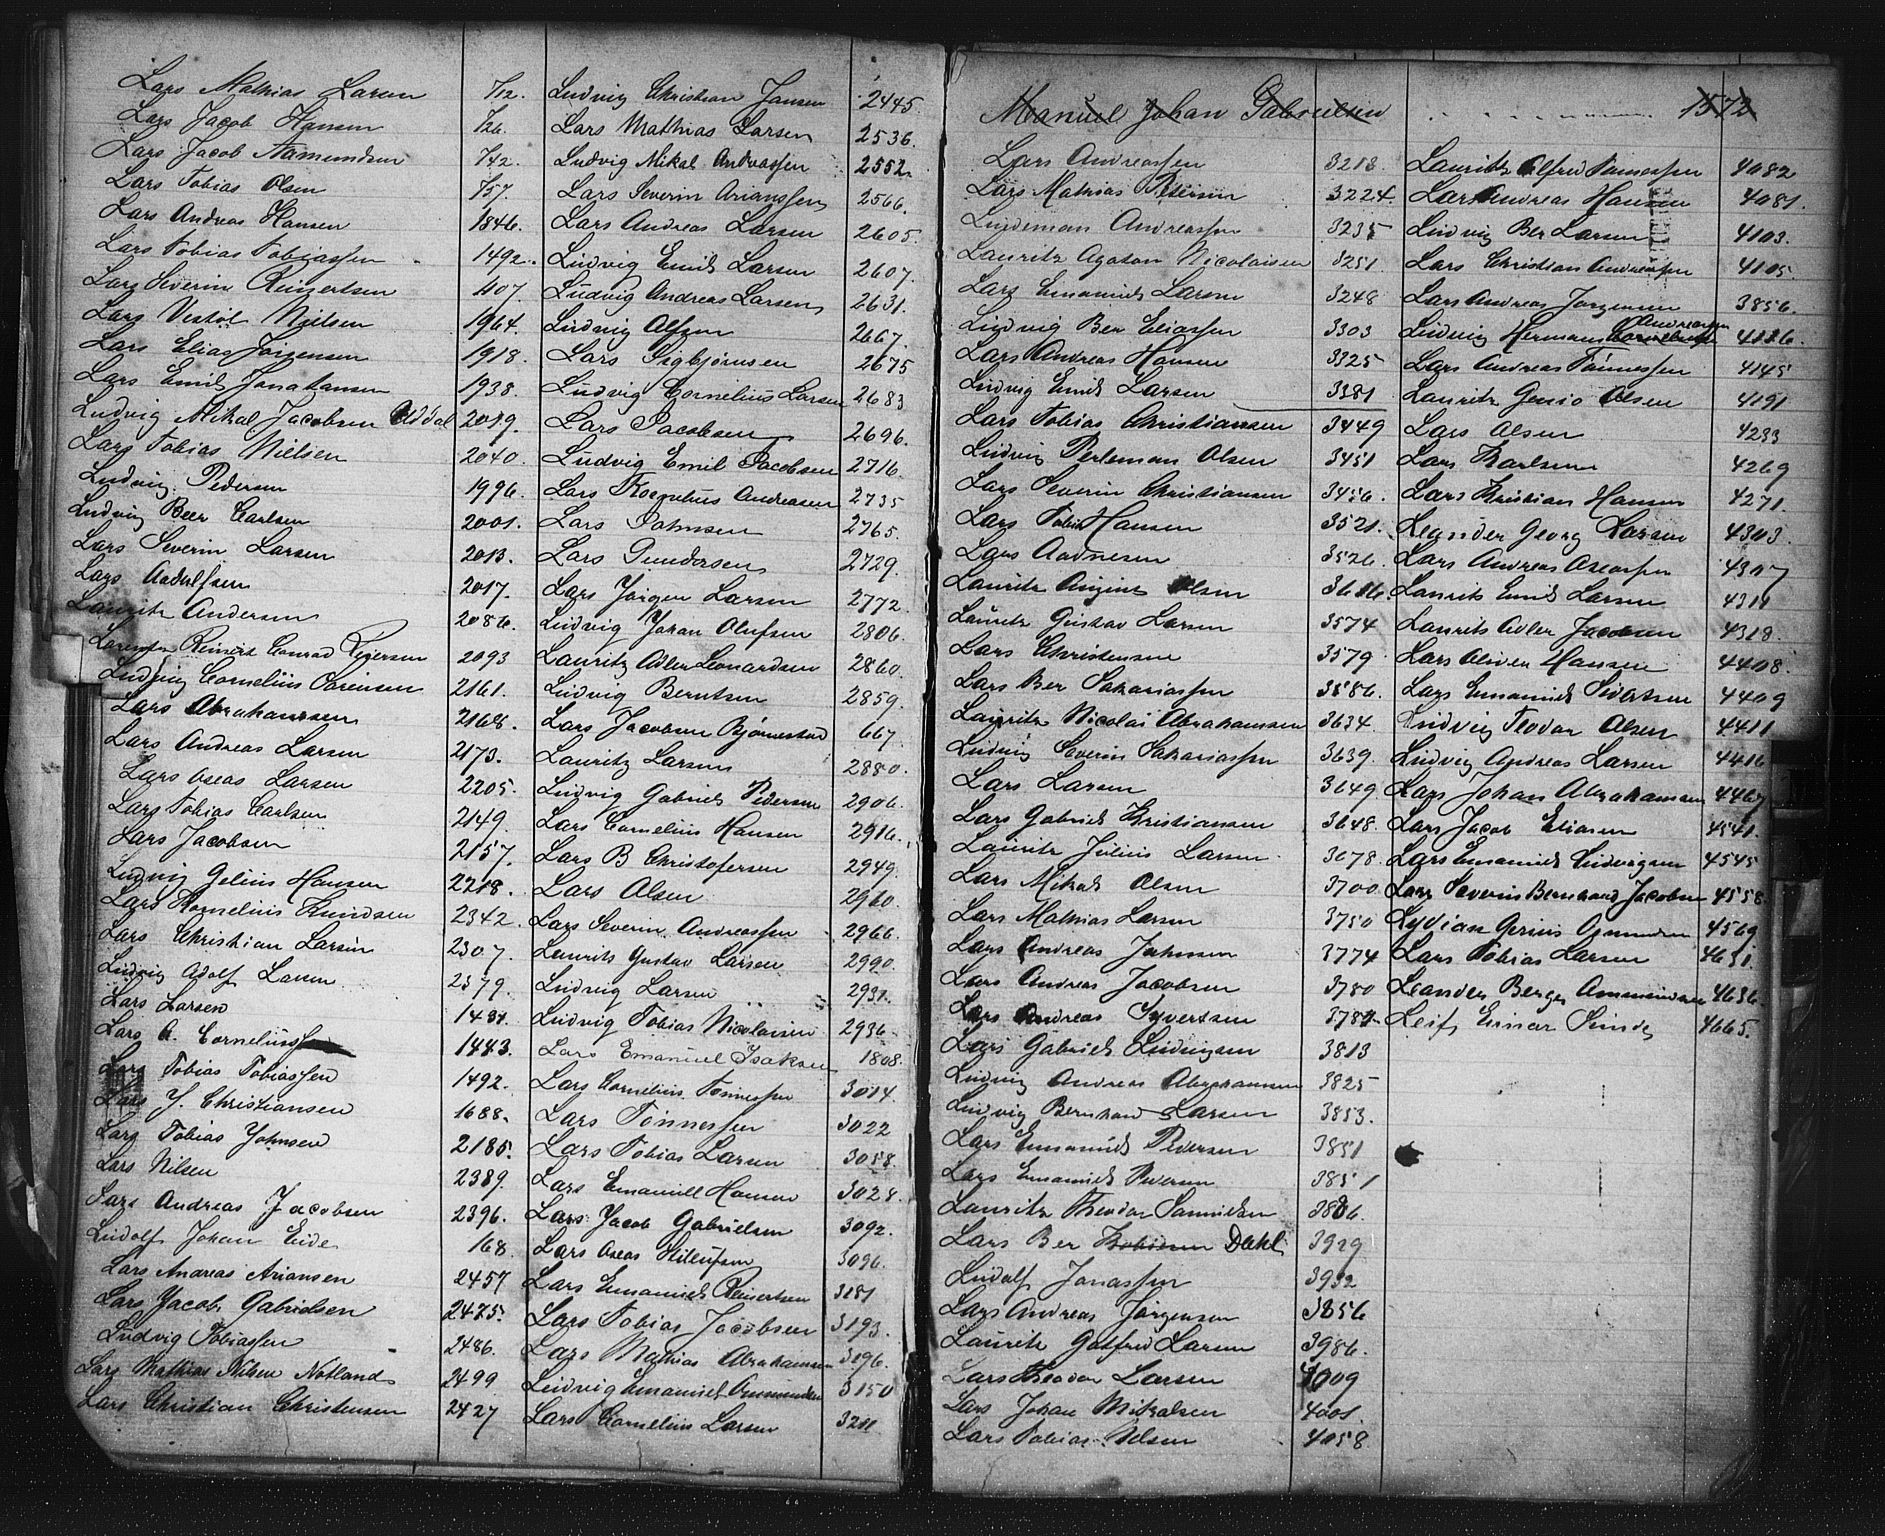 Lars Mathias Larsen 7/12.
Lars Jacob Hansen 7/26.
Lars Jacob Aamundsen 7/42.
Lars Tobias Olsen 7/57.
Lars Andreas Hansen 1846.
Lars Tobias Tobiassen 1492.
Lars Severin Reinertsen 1107.
Lars Vestøl Nielsen 1964.
Lars Elias Jørgensen 1918.
Lars Emil Jonathansen 1938.
Ludvig Mikal Jacobsen Oddal 2019.
Lars Tobias Nielsen 2040.
Ludvig Pedersen 1996.
Ludvig Beer Carlsen 2001.
Lars Severin Larsen 2013.
Lars Aadulfsen 2017.
Lauritz Andersen 2086.
Reinert Conrad Reiersen 2093
Ludvig Cornelius Sørensen 2161.
Lars Abrahamsen 2168.
Lars Andreas Larsen 2173.
Lars Oseas Larsen 2205.
Lars Tobias Carlsen 2149.
Lars Jacobsen 2157.
Ludvig Gelius Hansen 2218.
Lars Kornelius Knudsen 2342.
Lars Christian Larsen 2307.
Ludvig Adolf Larsen 2379.
Lars Larsen 1431.
Lars A. Corneliussen 1443.
Lars Tobias Tobiassen 1492.
Lars J. Christiansen 1688.
Lars Tobias Johnsen 2185.
Lars Nilsen 2389.
Lars Andreas Jacobsen 2396.
Ludolf Johan Eide 168.
Lars Andreas Ariansen 2457
Lars Jacob Gabrielsen 2475.
Ludvig Tobiassen 2486.
Lars Mathias Nilsen Notland 2499
Lars Christian Christensen 2427
Ludvig Christian Jansen 2445.
Lars Matthias Larsen 2536.
Ludvig Mikal Andreassen 2552.
Lars Severin Arianssen 2566.
Lars Andreas Larsen 2605.
Ludvig Emil Larsen 2607.
Ludvig Andreas Larsen 2631.
Ludvig Olsen 2667.
Lars Sigbjørnsen 2675
Ludvig Cornelius Larsen 2683
Lars Jacobsen 2696.
Ludvig Emil Jacobsen 2716.
Lars Kornelius Andreasen 2735
Lars Johnsen 2765.
Lars Gundersen 2729.
Lars Jørgen Larsen 2772.
Ludvig Johan Olufsen 2806.
Lauritz Adler Leonardsen 2860.
Ludvig Berntsen 2859.
Lars Jacobsen Bjørnestad 667.
Lauritz Larsen 2880.
Ludvig Gabriel Pedersen 2906.
Lars Cornelius Hansen 2916.
Lars B Christofersen 2949.
Lars Olsen 2960.
Lars Severin Andreassen 2966.
Laurits Gustav Larsen 2990.
Ludvig Larsen 2931.
Ludvig Tobias Nicolaisen 2936.
Lars Emanuel Isaksen 1808.
Lars Cornelius Tønnessen 3014.
Lars Tønnessen 3022
Lars Tobias Larsen 3058.
Lars Emanuell Hansen 3028.
Lars Jacob Gabrielsen 3092.
Lars Oseas 3096.
Lars Emanuel Reinertsen 3181
Lars Tobias Jacobsen 3193.
Lars Mathias Abrahamsen 3196.
Ludvig Emanuel Aamundsen 3150
Lars Cornelius Larsen 3211
Manuel Johan Gabrielsen 1572
Lars Andreassen 3213.
Lars Mathias Petersen 3224.
Lindeman Andreassen 3235
Lauritz Agaton Nicolaisen 3251.
Lars Emanuel Larsen 3248
Ludvig Ber Eliassen 3303
Lars Andreas Hansen 3325
Ludvig Emil Larsen 3381
Lars Tobias Christiansen 3449
Ludvig Perleman Olsen 3451
Lars Severin Christiansen 3456.
Lars Tobias Hansen 3521.
Lars Aadnesen 3526.
Lauritz Olsen 3616.
Lauritz Gustav Larsen 3574
Lars Christensen 3579.
Lars Ber Sakariassen 3586.
Lauritz Nicolai Abrahamsen 3634.
Ludvig Severin Sakariassen 3639.
Lars Larsen 3649.
Lars Gabriel Kristiansen 3648.
Lauritz Julius Larsen 3678.
Lars Mikal Olsen 3700.
Lars Mathias Larsen 3750
Lars Andreas Johnsen 3774
Lars Andreas Jacobsen 3780
Lars Andreas Syvertsen 3787
Lars Gabriel Ludvigsen 3813
Ludvig Andreas Abrahamsen 3825
Ludvig Bernhard Larsen 3853.
Lars Emanuel Pedersen 3851
Lars Emanuel Pedersen 3851
Lauritz Theodor Samuelsen 3886.
Lars Ber Dahl 3929
Ludolf Jonassen 3932
Lars Andreas Jørgensen 3856
Lauritz Gotfred Larsen 3986.
Lars Theodor Larsen 4009
Lars Johan Mikalsen 4001.
Lars Tobias Nilsen 4058
Lauritz Alfred Tønnessen 4082
Lars Andreas Hansen 4081.
Ludvig Ber Larsen 4103.
Lars Christian Andreassen 4105.
Lars Andreas Jørgensen 3856.
Andreassen
Ludvig Herman 4116.
Lars Andreas Tønnessen 4145
Lauritz Olsen 4191
Lars Olsen 4233
Lars Karlsen 4269
Lars Kristian Hansen 4271.
Leander Georg Larsen 4303.
Lars Andreas Aseassen 4307
Laurits Emil Larsen 4311
Laurits Adler Jacobsen 4318.
Lars Oliver Hansen 4408.
Lars Emanuel Sivertsen 4409
Ludvig Teodor Olsen 4411
Ludvig Andreas Larsen 4416
Lars Johan Abrahamsen 4467
Lars Jacob Eliasen 4541.
Lars Emanuel Ludvigsen 4545
Lars Severin Bernhard Jacobsen 4558.
Lydian 4569
Lars Tobias Larsen 4631.
Leander Berge Ammundsen 4636.
Leif Einar Sunde 4665.